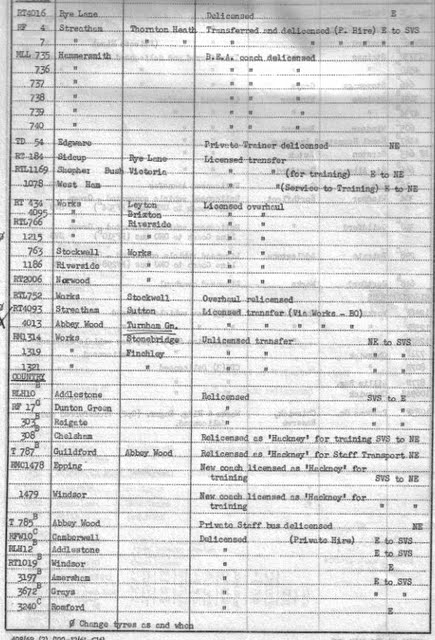 RT4016 Rye Lane Delicensed E
RF 4 Streatham Thornton Heath Transferred and delicensed (P. Hire) E to SVS
7 " " " " " " " " "
MLL 735 Hammersmith B.E.A. coach delicensed
736 " " "
737 " " "
738 " " "
739 " " "
740 " " "
TD 54 Edgware Private Trainer delicensed NE
RT 184 Sidcup Rye Lane Licensed transfer
RTL1169 Shepher Bush Victoria " " (for training) E to NE
1078 West Ham " "(Service to Training) E to NE
RT 434 Works Leyton Licensed overhaul
4095 " Brixton " "
RTL766 " Riverside " "
Ø 1215 " " " "
763 Stockwell Works " "
1186 Riverside " " "
RT2006 Norwood " " "
RTL752 Works Stockwell Overhaul relicensed
Ø RT4093 Streatham Sutton Licensed transfer (Via Works - BO)
X 4013 Abbey Wood Turnham Gn. " " " " "
RM1314 Works Stonebridge Unlicensed transfer NE to SVS
1319 " Finchley " " " "
1321 " " " " " "
COUNTRY
RLH10 B Addlestone Relicensed SVS to E
RF 17 G Dunton Green " "
303 B Reigate " "
308 B Chelsham Relicensed as 'Hackney' for training SVS to NE
T 787 B Guildford Abbey Wood Relicensed as 'Hackney' for Staff Transport NE
RMC1478 Epping New coach licensed as 'Hackney' for
training SVS to NE
1479 Windsor New coach licensed as 'Hackney' for
training " "
T 785 B Abbey Wood Private Staff bus delicensed NE
RFW10 C Camberwell Delicensed (Private Hire) E to SVS
RLH12 B Addlestone " E to SVS
RT1019 B Windsor " E
3197 B Amersham " E to SVS
3672 B Grays " " "
3240 C Romford " E
Ø Change tyres as and when